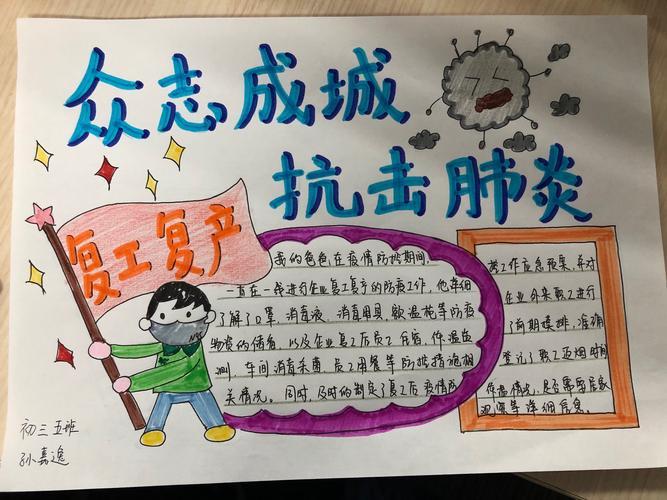 众志成城
抗击肺炎
复工复产
我的爸爸在疫情防控期间,
一直在一线进行企业复工复产的防疫工作,他详细
了解了口罩、消毒液、消毒用具、额温枪等防疫
物资的储备,以及企业复工后员工住宿、体温监
测、车间消毒杀菌、员工用餐等防控措施相
关情况。同时,及时的制定了复工后疫情防
控工作应急预案,并对
企业外来职工进行
了前期摸排,准确
登记了职工返烟时间
作息情况,是否需要居家
观察等详细信息。
初三五班
孙嘉逸